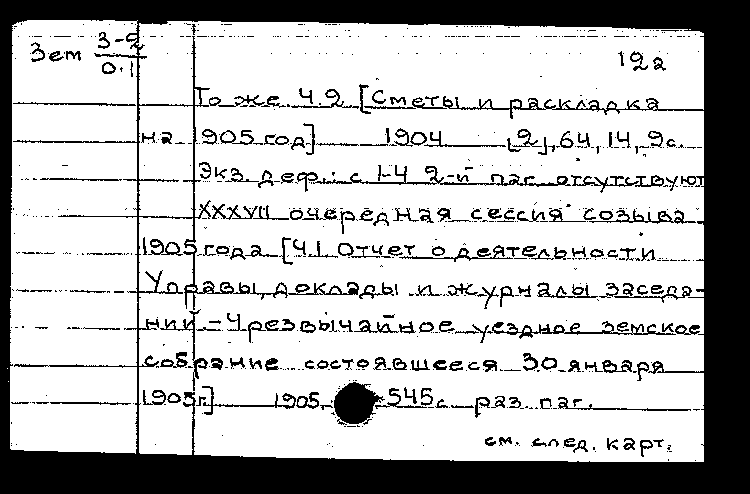 Зем 3-2/0.1 12а
То же Ч.2 [Сметы и раскладка
на 1905 год] 1904 [2], 64, 14, 9с.
Экз. деф.: с 1-4 2-й паг. отсутствуют
XXXVII очередная сессия созыва
1905 года [Ч.1 Отчет о деятельности
Управы, доклады и журналы заседа-
ний. – Чрезвычайное уездное земское
собрание состоявшееся 30 января
1905г.] 1905. 545с. раз. паг.
см. след. карт.